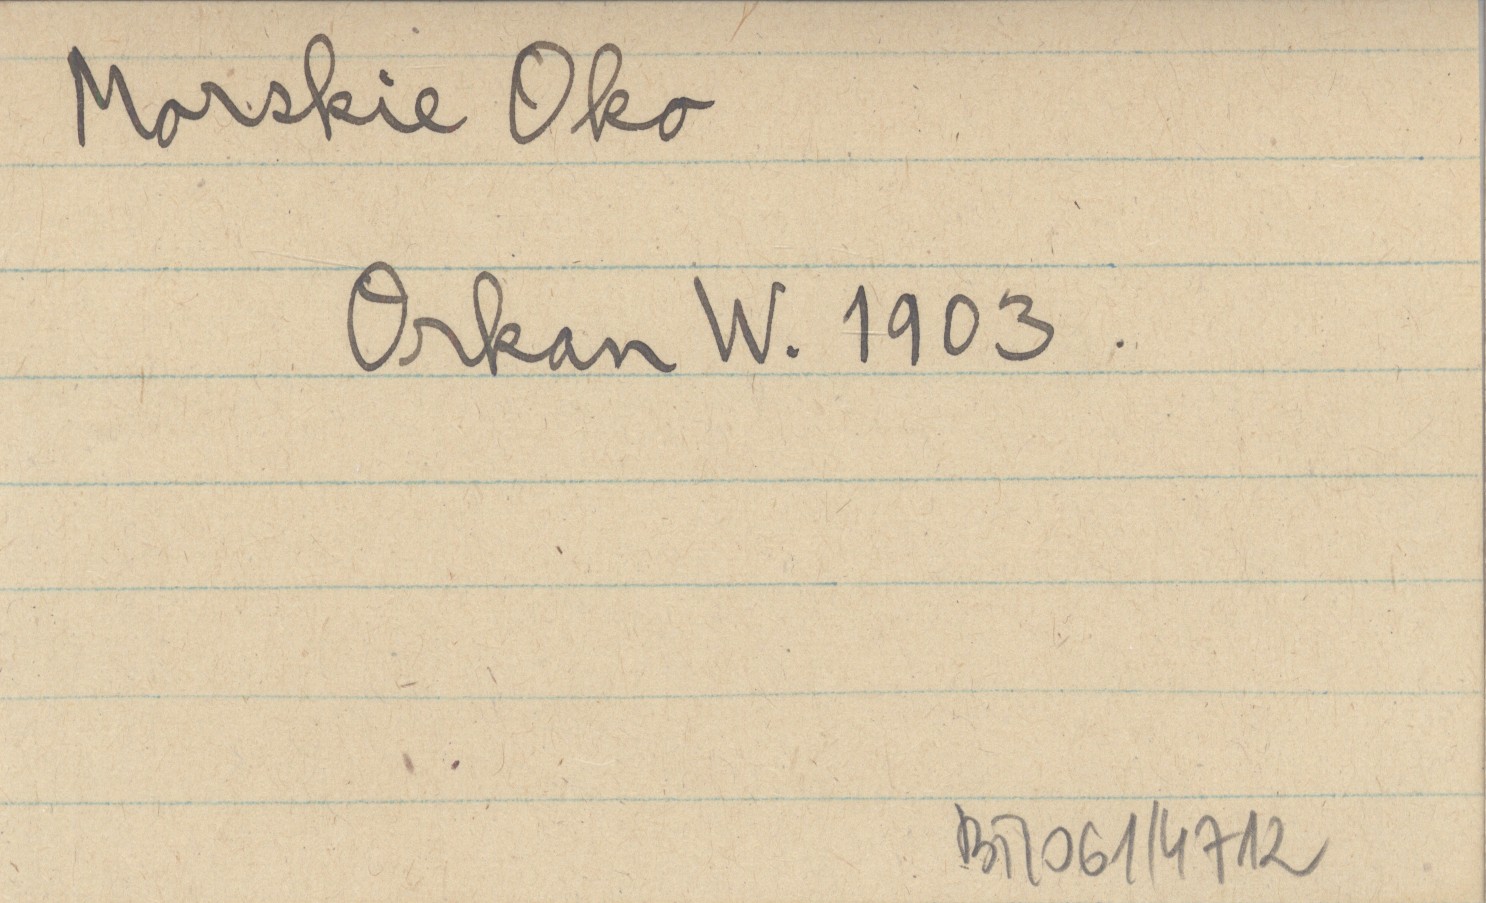 Morskie Oko
Orkan W. 1903.
061/4712